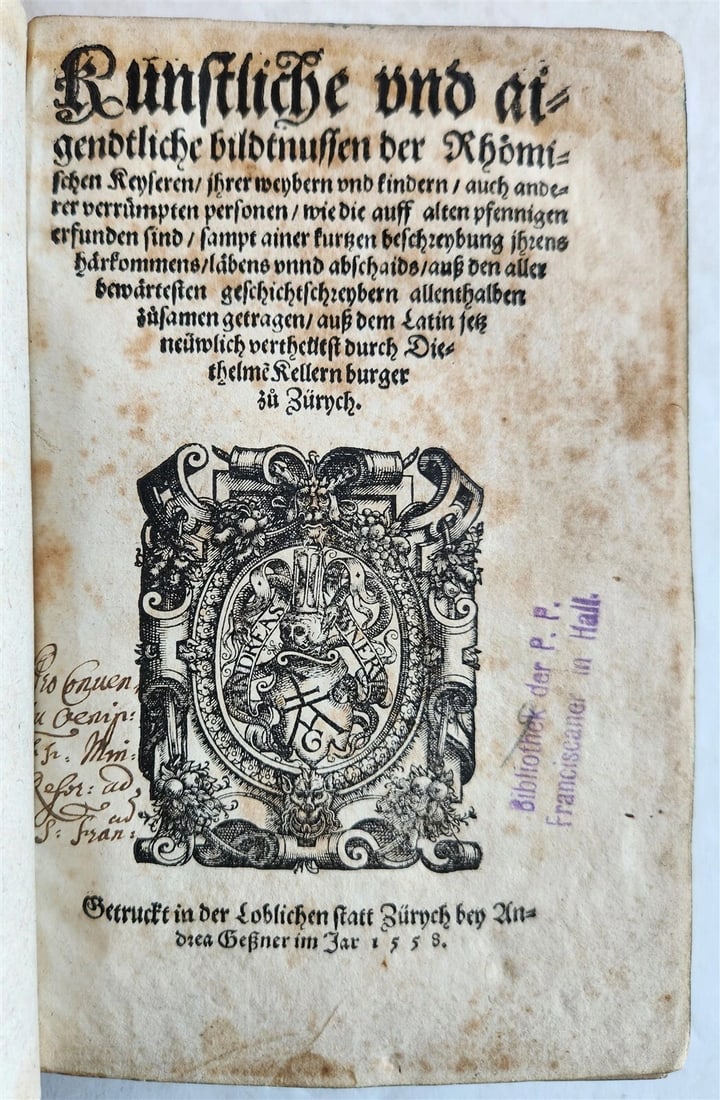 Künstliche vnd ai⸗
gendtliche bildtnussen der Rhömi⸗
schen Keyseren/ jhrer weybern vnd kindern/ auch ande⸗
rer verrümpten personen/ wie die auff alten pfennigen
erfunden sind/ sampt ainer kurtzen beschreybung jhrens
härkommens/ läbens vnnd abschaids/ auß den aller
bewärtesten geschichtschreybern allenthalben
zůsamen getragen/ auß dem Latin jetz
neüwlich verthedtst durch Die⸗
thelmē Kellern burger
zů Zürych.
Pro Conuen
Oenip:
Fr: Min:
Refor: ad
S: Fran:
Bibliothek der P. P.
Franciscaner in Hall.
Getruckt in der Loblichen statt Zürych bey An⸗
drea Geßner im Jar 1558.